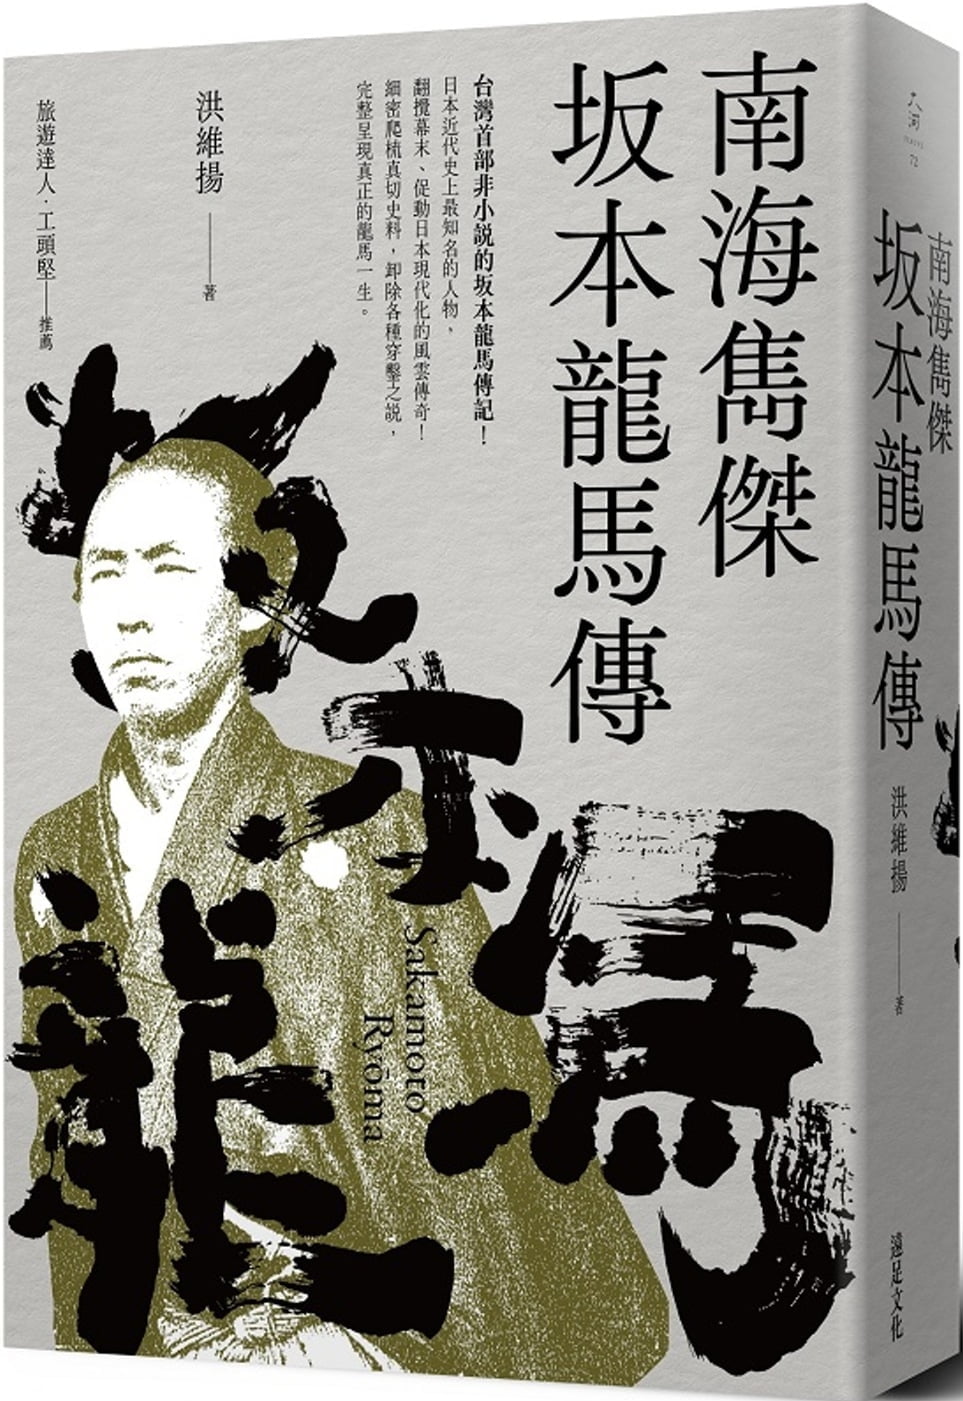 南海雋傑
坂本龍馬傳
台灣首部非小說的坂本龍馬傳記！
日本近代史上最知名的人物，
翻攪幕末、促動日本現代化的風雲傳奇！
細密爬梳真切史料，卸除各種穿鑿之說，
完整呈現真正的龍馬一生。
洪維揚——著
旅遊達人．工頭堅——推薦
坂本龍馬
Sakamoto
Ryōma
大河
72
南海雋傑
坂本龍馬傳
洪維揚——著
遠足文化